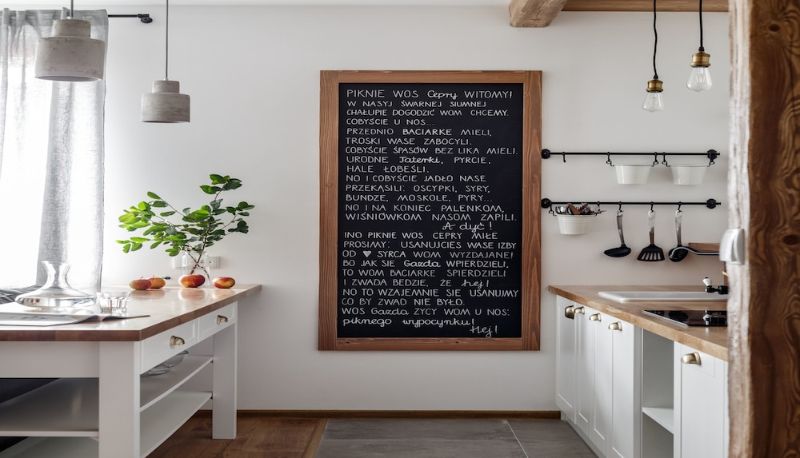 PIKNIE WOS Cepry WITOMY!
W NASYJ ŚWARNEJ SIUMNEJ
CHAŁUPIE DOGODZIĆ WOM CHCEMY.
COBYŚCIE U NOS...
PRZEDNIO BACIARKE MIELI,
TROSKI WASE ZABOCYLI.
COBYŚCIE ŚPASÓW BEZ LIKA MIELI.
URODNE Taterki, PYRCIE,
HALE ŁOBEŚLI.
NO I COBYŚCIE JADŁO NASE
PRZEKĄSILI: OSCYPKI, SYRY,
BUNDZE, MOSKOLE, PYRY...
NO I NA KONIEC PALENKOM,
WIŚNIÓWKOM NASOM ZAPILI.
A dyć!
INO PIKNIE WOS CEPRY MIŁE
PROSIMY: USANUJCIES WASE IZBY
OD ♥ SYRCA WOM WYZDAJANE!
BO JAK SIE Gazda WPIERDZIELI,
TO WOM BACIARKE SPIERDZIELI
I ZWADA BEDZIE, ŻE hej!
NO TO WZAJEMNIE SIE USANUJMY
CO BY ZWAD NIE BYŁO.
WOS Gazda ZYCY WOM U NOS:
piknego wypocynku!
Hej!